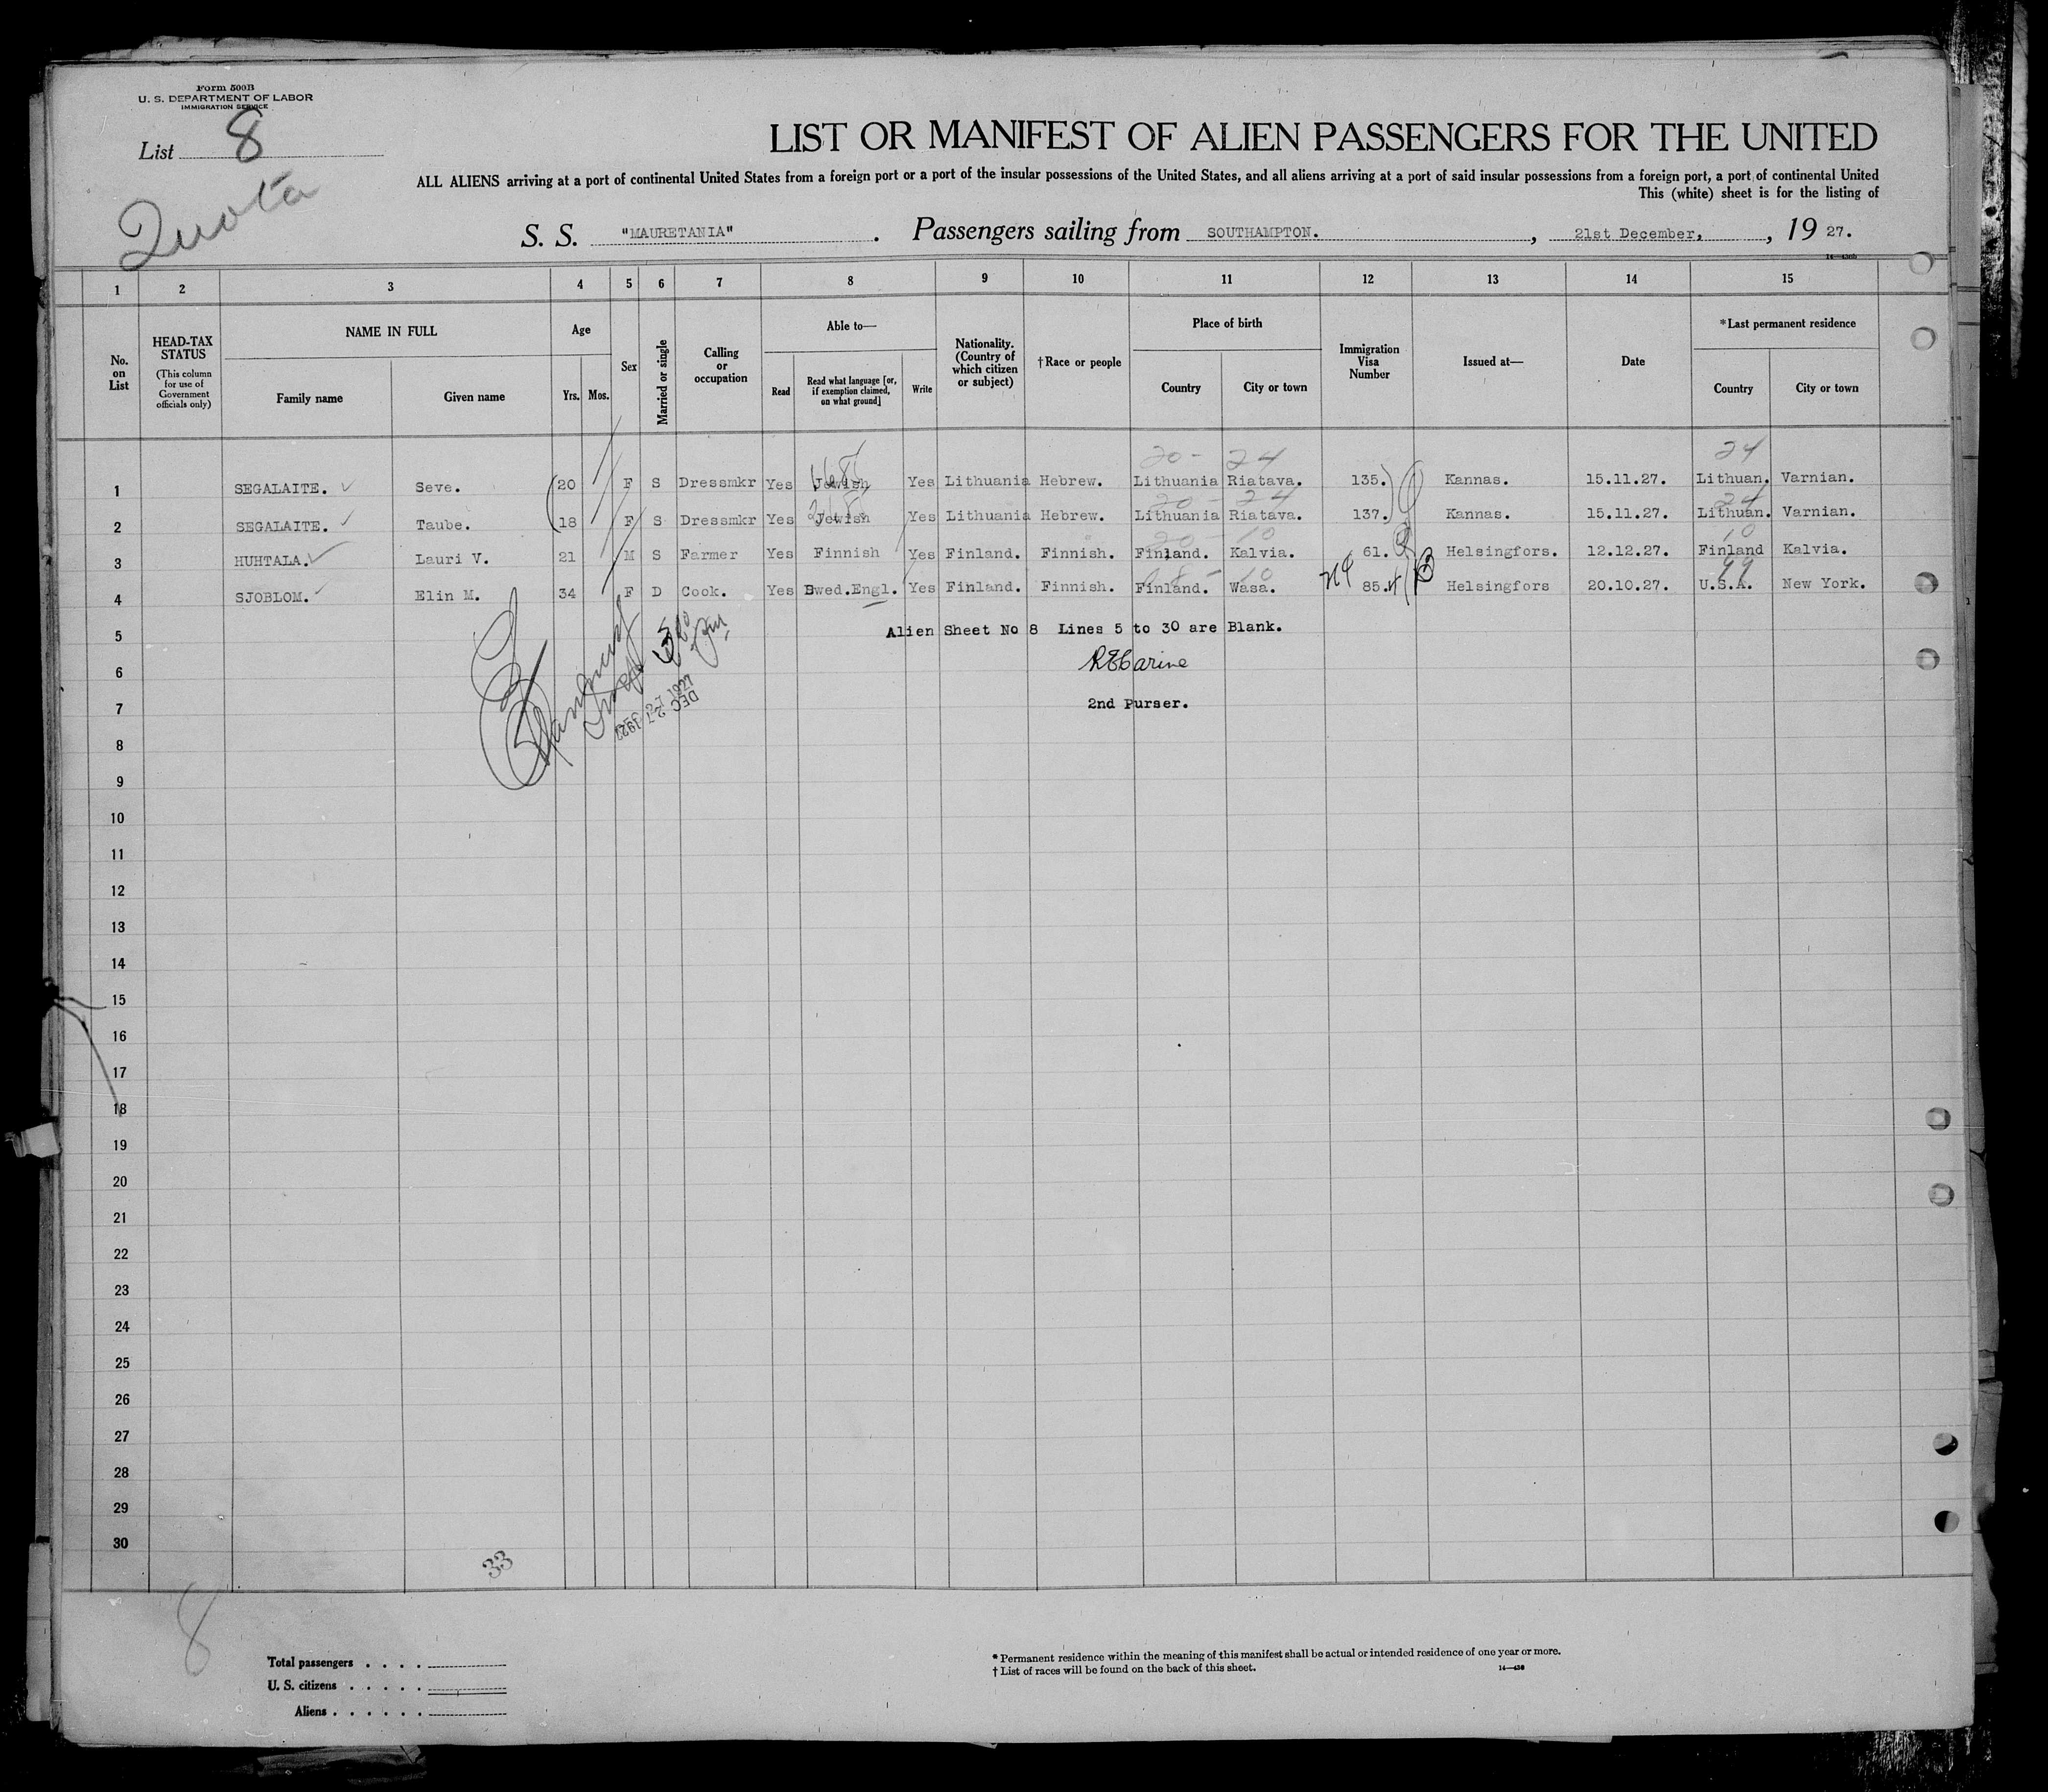 Form 500B
U. S. DEPARTMENT OF LABOR
IMMIGRATION SERVICE
List 8
Quota
LIST OR MANIFEST OF ALIEN PASSENGERS FOR THE UNITED
ALL ALIENS arriving at a port of continental United States from a foreign port or a port of the insular possessions of the United States, and all aliens arriving at a port of said insular possessions from a foreign port, a port of continental United
This (white) sheet is for the listing of
S. S. "MAURETANIA". Passengers sailing from SOUTHAMPTON., 21st December,, 19 27.
1 2 3 4 5 6 7 8 9 10 11 12 13 14 15
No. on List
HEAD-TAX STATUS
(This column for use of Government officials only)
NAME IN FULL
Family name Given name
Age
Yrs. Mos.
Sex
Married or single
Calling or occupation
Able to—
Read
Read what language [or, if exemption claimed, on what ground]
Write
Nationality. (Country of which citizen or subject)
†Race or people
Place of birth
Country City or town
Immigration Visa Number
Issued at—
Date
*Last permanent residence
Country City or town
20 - 24 24
1 SEGALAITE. Seve. 20 F S Dressmkr Yes Jewish Yes Lithuania Hebrew. Lithuania Riatava. 135. Kannas. 15.11.27. Lithuan. Varnian.
20 - 24 24
2 SEGALAITE. Taube. 18 F S Dressmkr Yes Jewish Yes Lithuania Hebrew. Lithuania Riatava. 137. Kannas. 15.11.27. Lithuan. Varnian.
20 - 10 10
3 HUHTALA. Lauri V. 21 M S Farmer Yes Finnish Yes Finland. Finnish. Finland. Kalvia. 61. Helsingfors. 12.12.27. Finland Kalvia.
10 99
4 SJOBLOM. Elin M. 34 F D Cook. Yes Swed.Engl. Yes Finland. Finnish. Finland. Wasa. 85. Helsingfors 20.10.27. U.S.A. New York.
5 Alien Sheet No 8 Lines 5 to 30 are Blank.
6
7 2nd Purser.
DEC 27 1927
8
9
10
11
12
13
14
15
16
17
18
19
20
21
22
23
24
25
26
27
28
29
30
33
8
Total passengers . . . .
U. S. citizens . . . . .
Aliens . . . . . .
* Permanent residence within the meaning of this manifest shall be actual or intended residence of one year or more.
† List of races will be found on the back of this sheet.